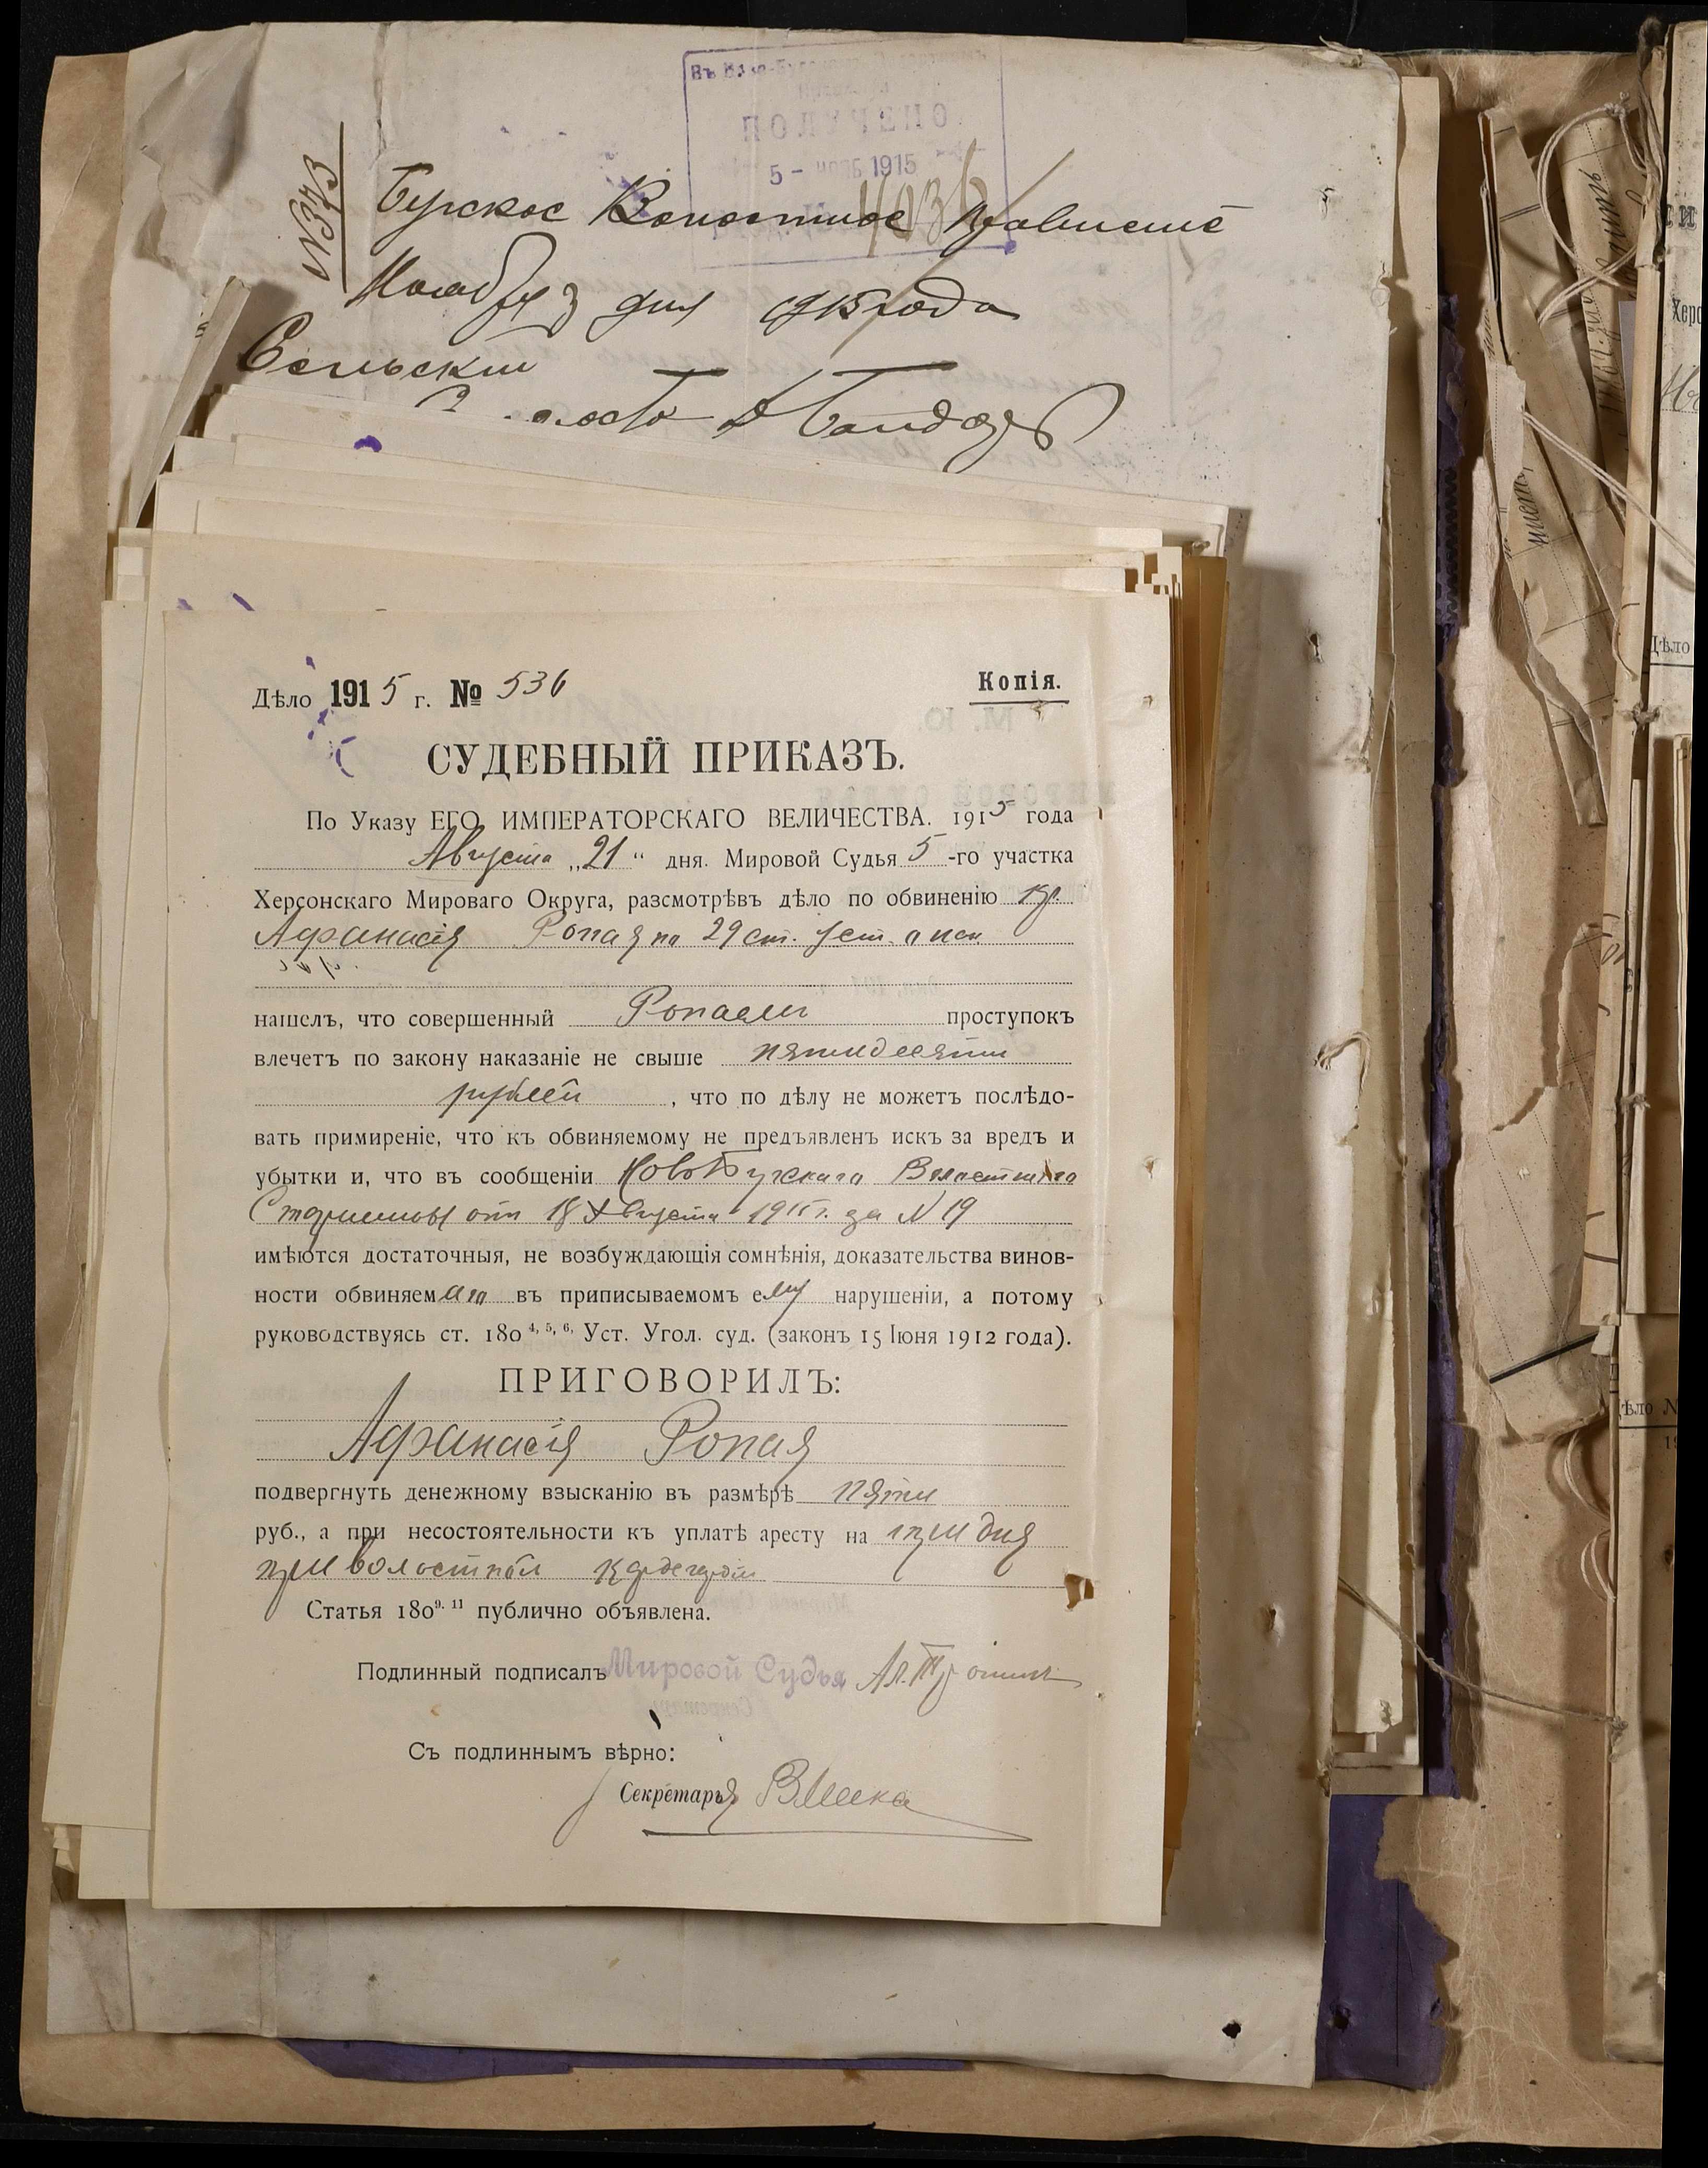 Въ
5 - нояб 1915
№373
Бугское Волостное Правленіе
Ноября 3 дня 1915 года
Сельскій
Дѣло 1915 г. № 536
Копія.
СУДЕБНЫЙ ПРИКАЗЪ.
По Указу ЕГО ИМПЕРАТОРСКАГО ВЕЛИЧЕСТВА. 1915 года
Августа „21“ дня. Мировой Судья 5-го участка
Херсонскаго Мироваго Округа, разсмотрѣвъ дѣло по обвиненію кр.
Афанасія Ропая по 29 ст. Уст. о нак
нашелъ, что совершенный Ропаемъ проступокъ
влечетъ по закону наказаніе не свыше пятидесяти
рублей, что по дѣлу не можетъ послѣдо-
вать примиреніе, что къ обвиняемому не предъявленъ искъ за вредъ и
убытки и, что въ сообщеніи Ново Бугскаго Волостного
Старшины отъ 18 Августа 1915 г. за N 19
имѣются достаточныя, не возбуждающія сомнѣнія, доказательства винов-
ности обвиняемаго въ приписываемомъ ему нарушеніи, а потому
руководствуясь ст. 180 4, 5, 6, Уст. Угол. суд. (законъ 15 Іюня 1912 года).
ПРИГОВОРИЛЪ:
Афанасія Ропая
подвергнуть денежному взысканію въ размѣрѣ пяти
руб., а при несостоятельности къ уплатѣ аресту на три дня
при волостной
Статья 180 9. 11 публично объявлена.
Подлинный подписалъ Мировой Судья
Съ подлиннымъ вѣрно:
Секретарь
Дѣло